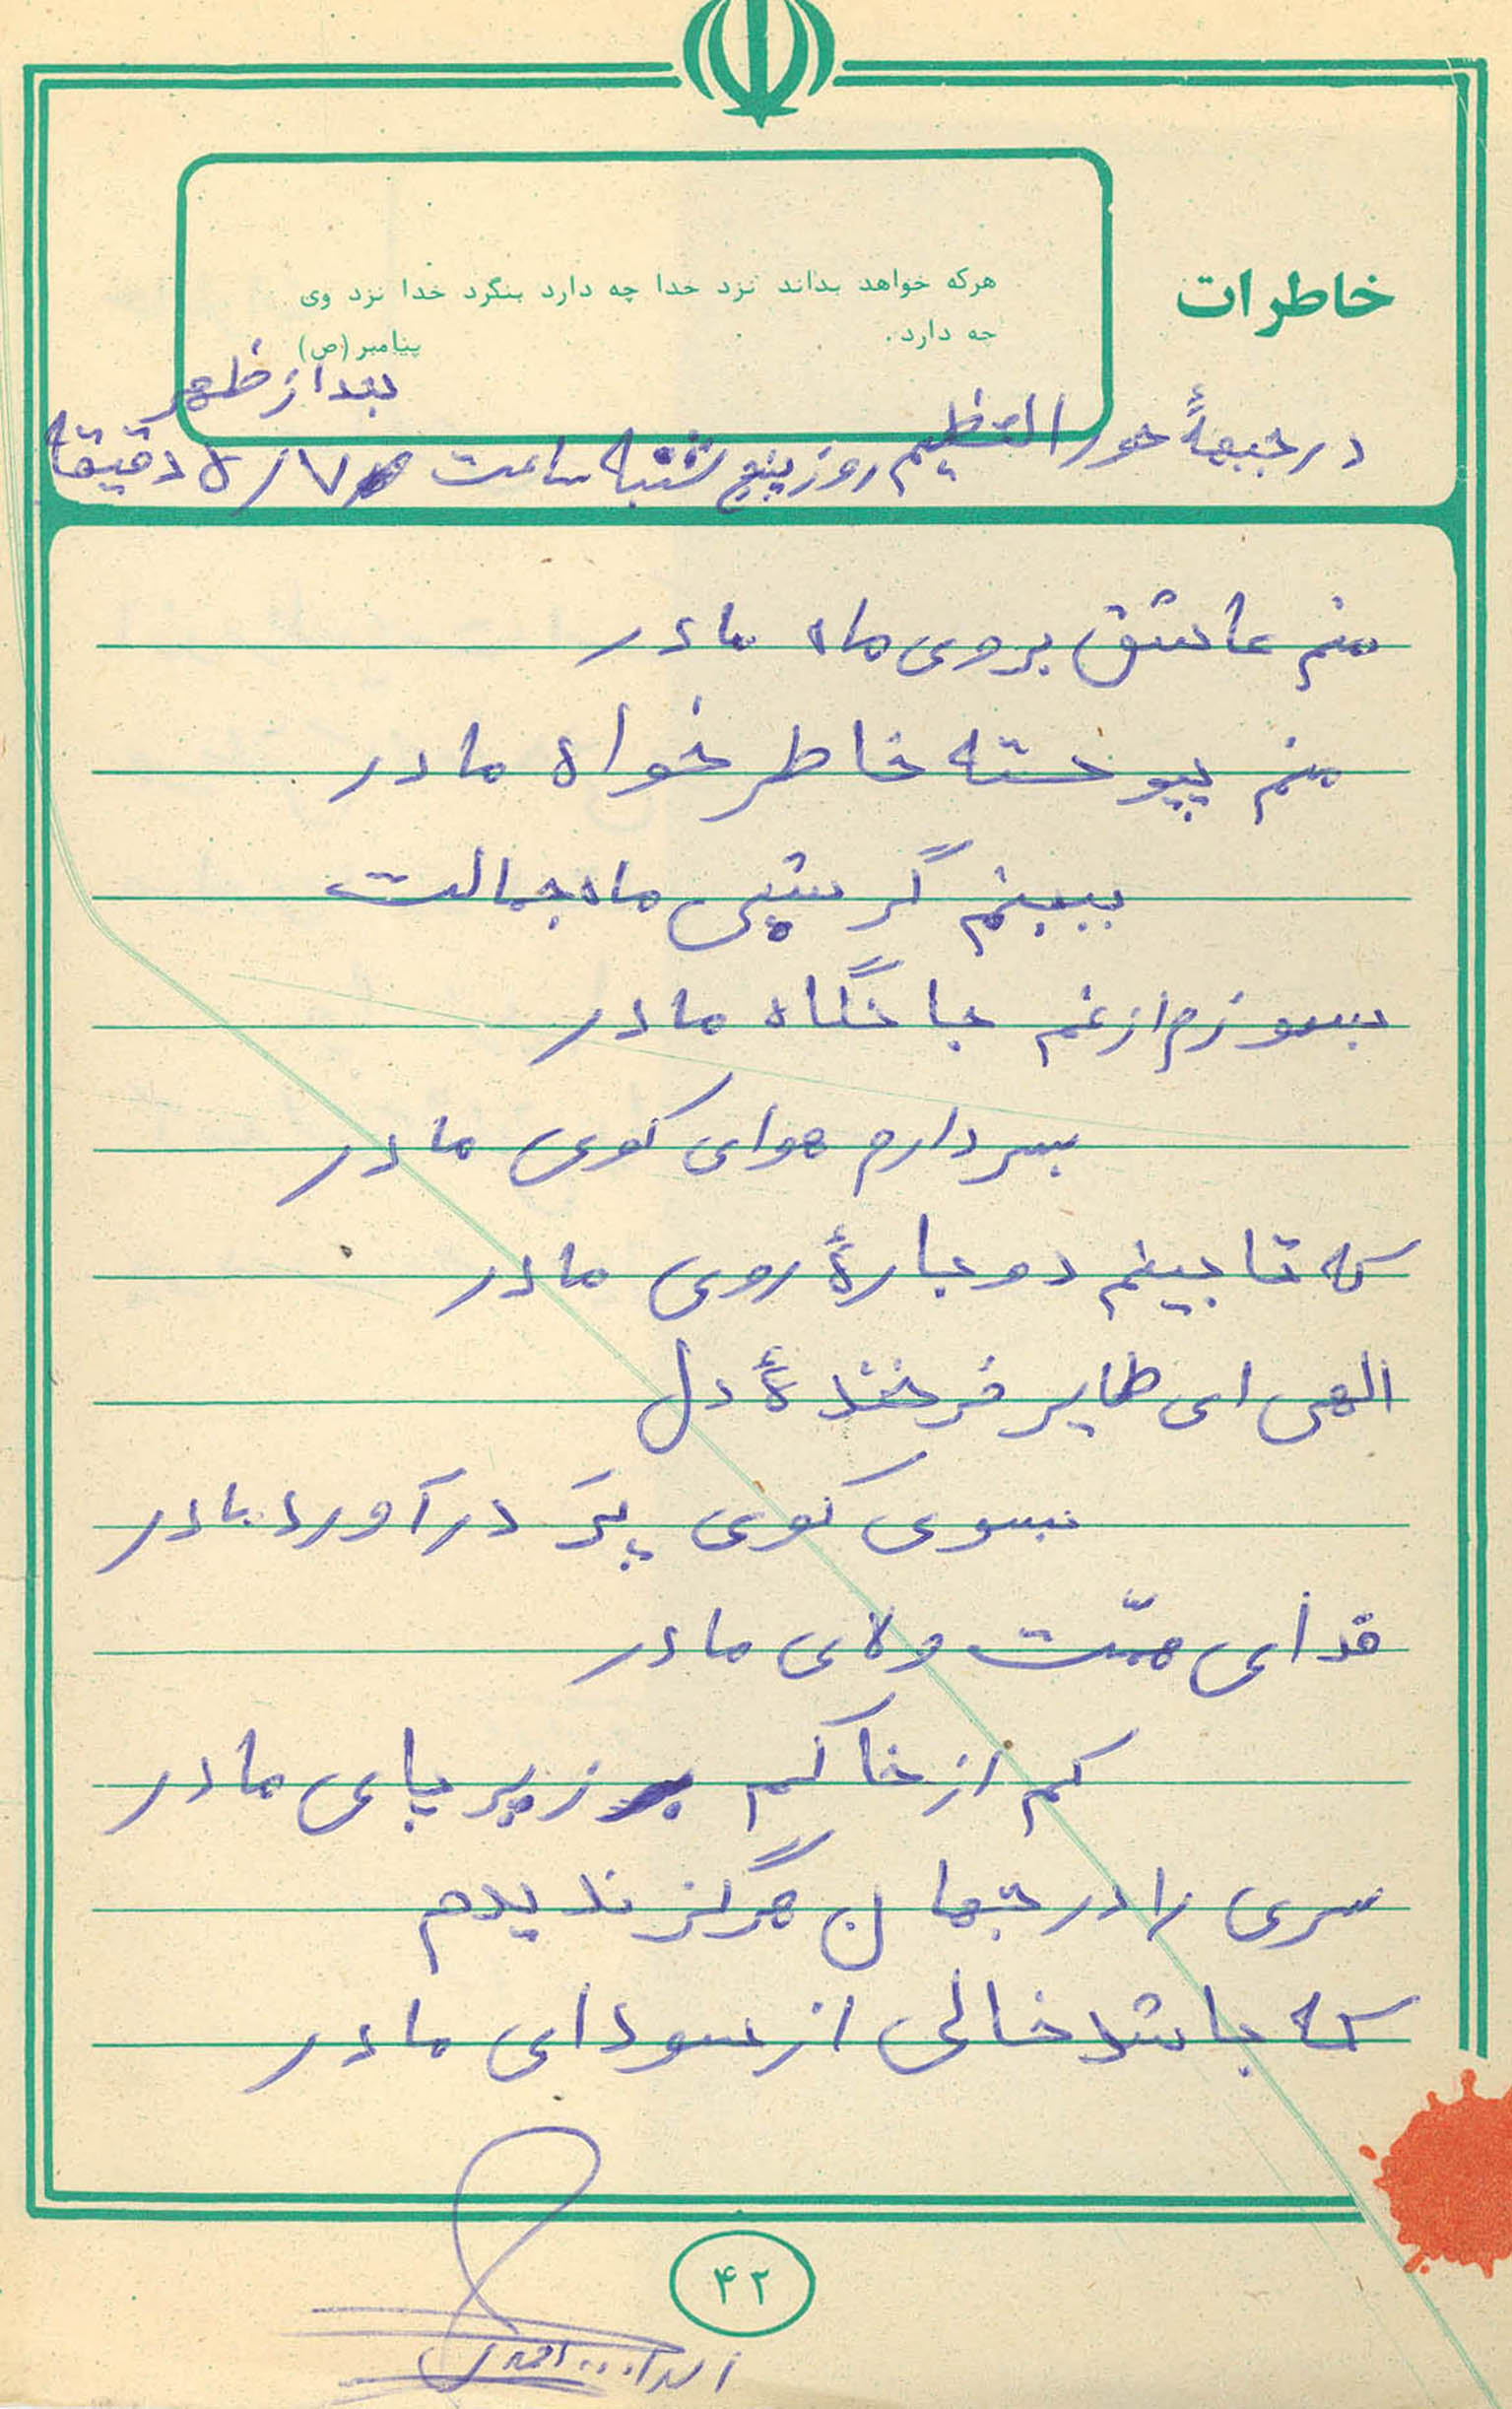 خاطرات
هرکه خواهد بداند نزد خدا چه دارد بنگرد خدا نزد وی
چه دارد.
پیامبر (ص)
بعد از ظهر
در جبههٔ حور العظیم روز پنج شنبه ساعت ۷/۵ دقیقه
منم عاشق بروی ماه مادر
منم پیوخسته خاطرخواه مادر
ببینم گر شبی ماه جمالت
بسوزم از غم جانگاه مادر
بسر دارم هوای کوی مادر
که تا بینم دوبارهٔ روی مادر
الهی ای طایر فرخندهٔ دل
بسوی کوی پَر درآورد مادر
فدای همّت ولای مادر
کم از خاکم زیر پای مادر
سری را در جهان هرگز ندیدم
که باشد خالی از سودای مادر
۴۲